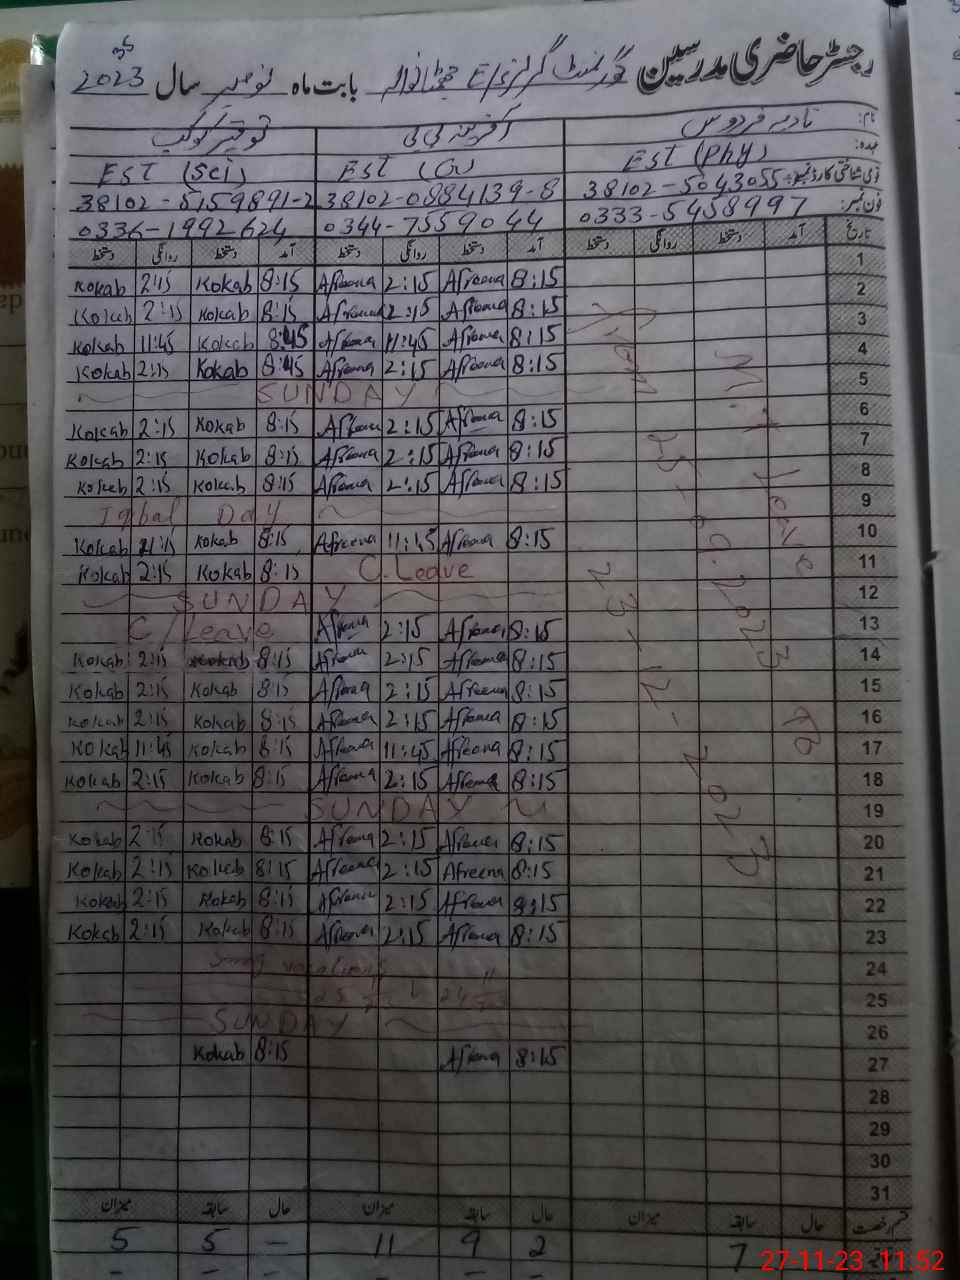 رجسٹر حاضری مدرسین گورنمنٹ گرلز بابت ماہ نومبر سال 2023
نام: نادیہ فردوس توقیر کوکب
عہدہ: EST (Phy) EST EST (Sci)
38102-5043055 38102-0884139-8 38102-5159891-2
فون نمبر: 0333-5458997 0344-7559044 0336-1992624
تاریخ آمد دستخط روانگی دستخط آمد دستخط روانگی دستخط آمد دستخط روانگی دستخط
1
Kokab 2:15 Kokab 8:15 Afreena 2:15 Afreena 8:15 2
Kokab 2:15 Kokab 8:15 Afreena 2:15 Afreena 8:15 3
Kokab 11:45 Kokab 8:45 Afreena 11:45 Afreena 8:15 4
Kokab 2:15 Kokab 8:45 Afreena 2:15 Afreena 8:15
SUNDAY 5
Kokab 2:15 Kokab 8:15 Afreena 2:15 Afreena 8:15 6
Kokab 2:15 Kokab 8:15 Afreena 2:15 Afreena 8:15 7
Kokab 2:15 Kokab 8:15 Afreena 2:15 Afreena 8:15 8
Iqbal Day 9
Kokab Kokab 8:15 Afreena 11:15 Afreena 8:15 10
Kokab 2:15 Kokab 8:15 C.Leave 11
SUNDAY 12
C/Leave Afreena 2:15 Afreena 8:15 13
Kokab 2:15 Kokab 8:15 Afreena 2:15 Afreena 8:15 14
Kokab 2:15 Kokab 8:15 Afreena 2:15 Afreena 8:15 15
Kokab 2:15 Kokab 8:15 Afreena 2:15 Afreena 8:15 16
Kokab 11:45 Kokab 8:15 Afreena 11:45 Afreena 8:15 17
Kokab 2:15 Kokab 8:15 Afreena 2:15 Afreena 8:15 18
SUNDAY 19
Kokab 2:15 Kokab 8:15 Afreena 2:15 Afreena 8:15 20
Kokab 2:15 Kokab 8:15 Afreena 2:15 Afreena 8:15 21
Kokab 2:15 Kokab 8:15 Afreena 2:15 Afreena 8:15 22
Kokab 2:15 Kokab 8:15 Afreena 2:15 Afreena 8:15 23
Smog vacations 24
25
SUNDAY 26
Kokab 8:15 Afreena 8:15 27
28
29
30
31
M.t Leave
From 25-9-2023 To
23-12-2023
قسم رخصت حال سابقہ میزان حال سابقہ میزان حال سابقہ میزان
7 2 9 11 - 5 5
27-11-23 11:52